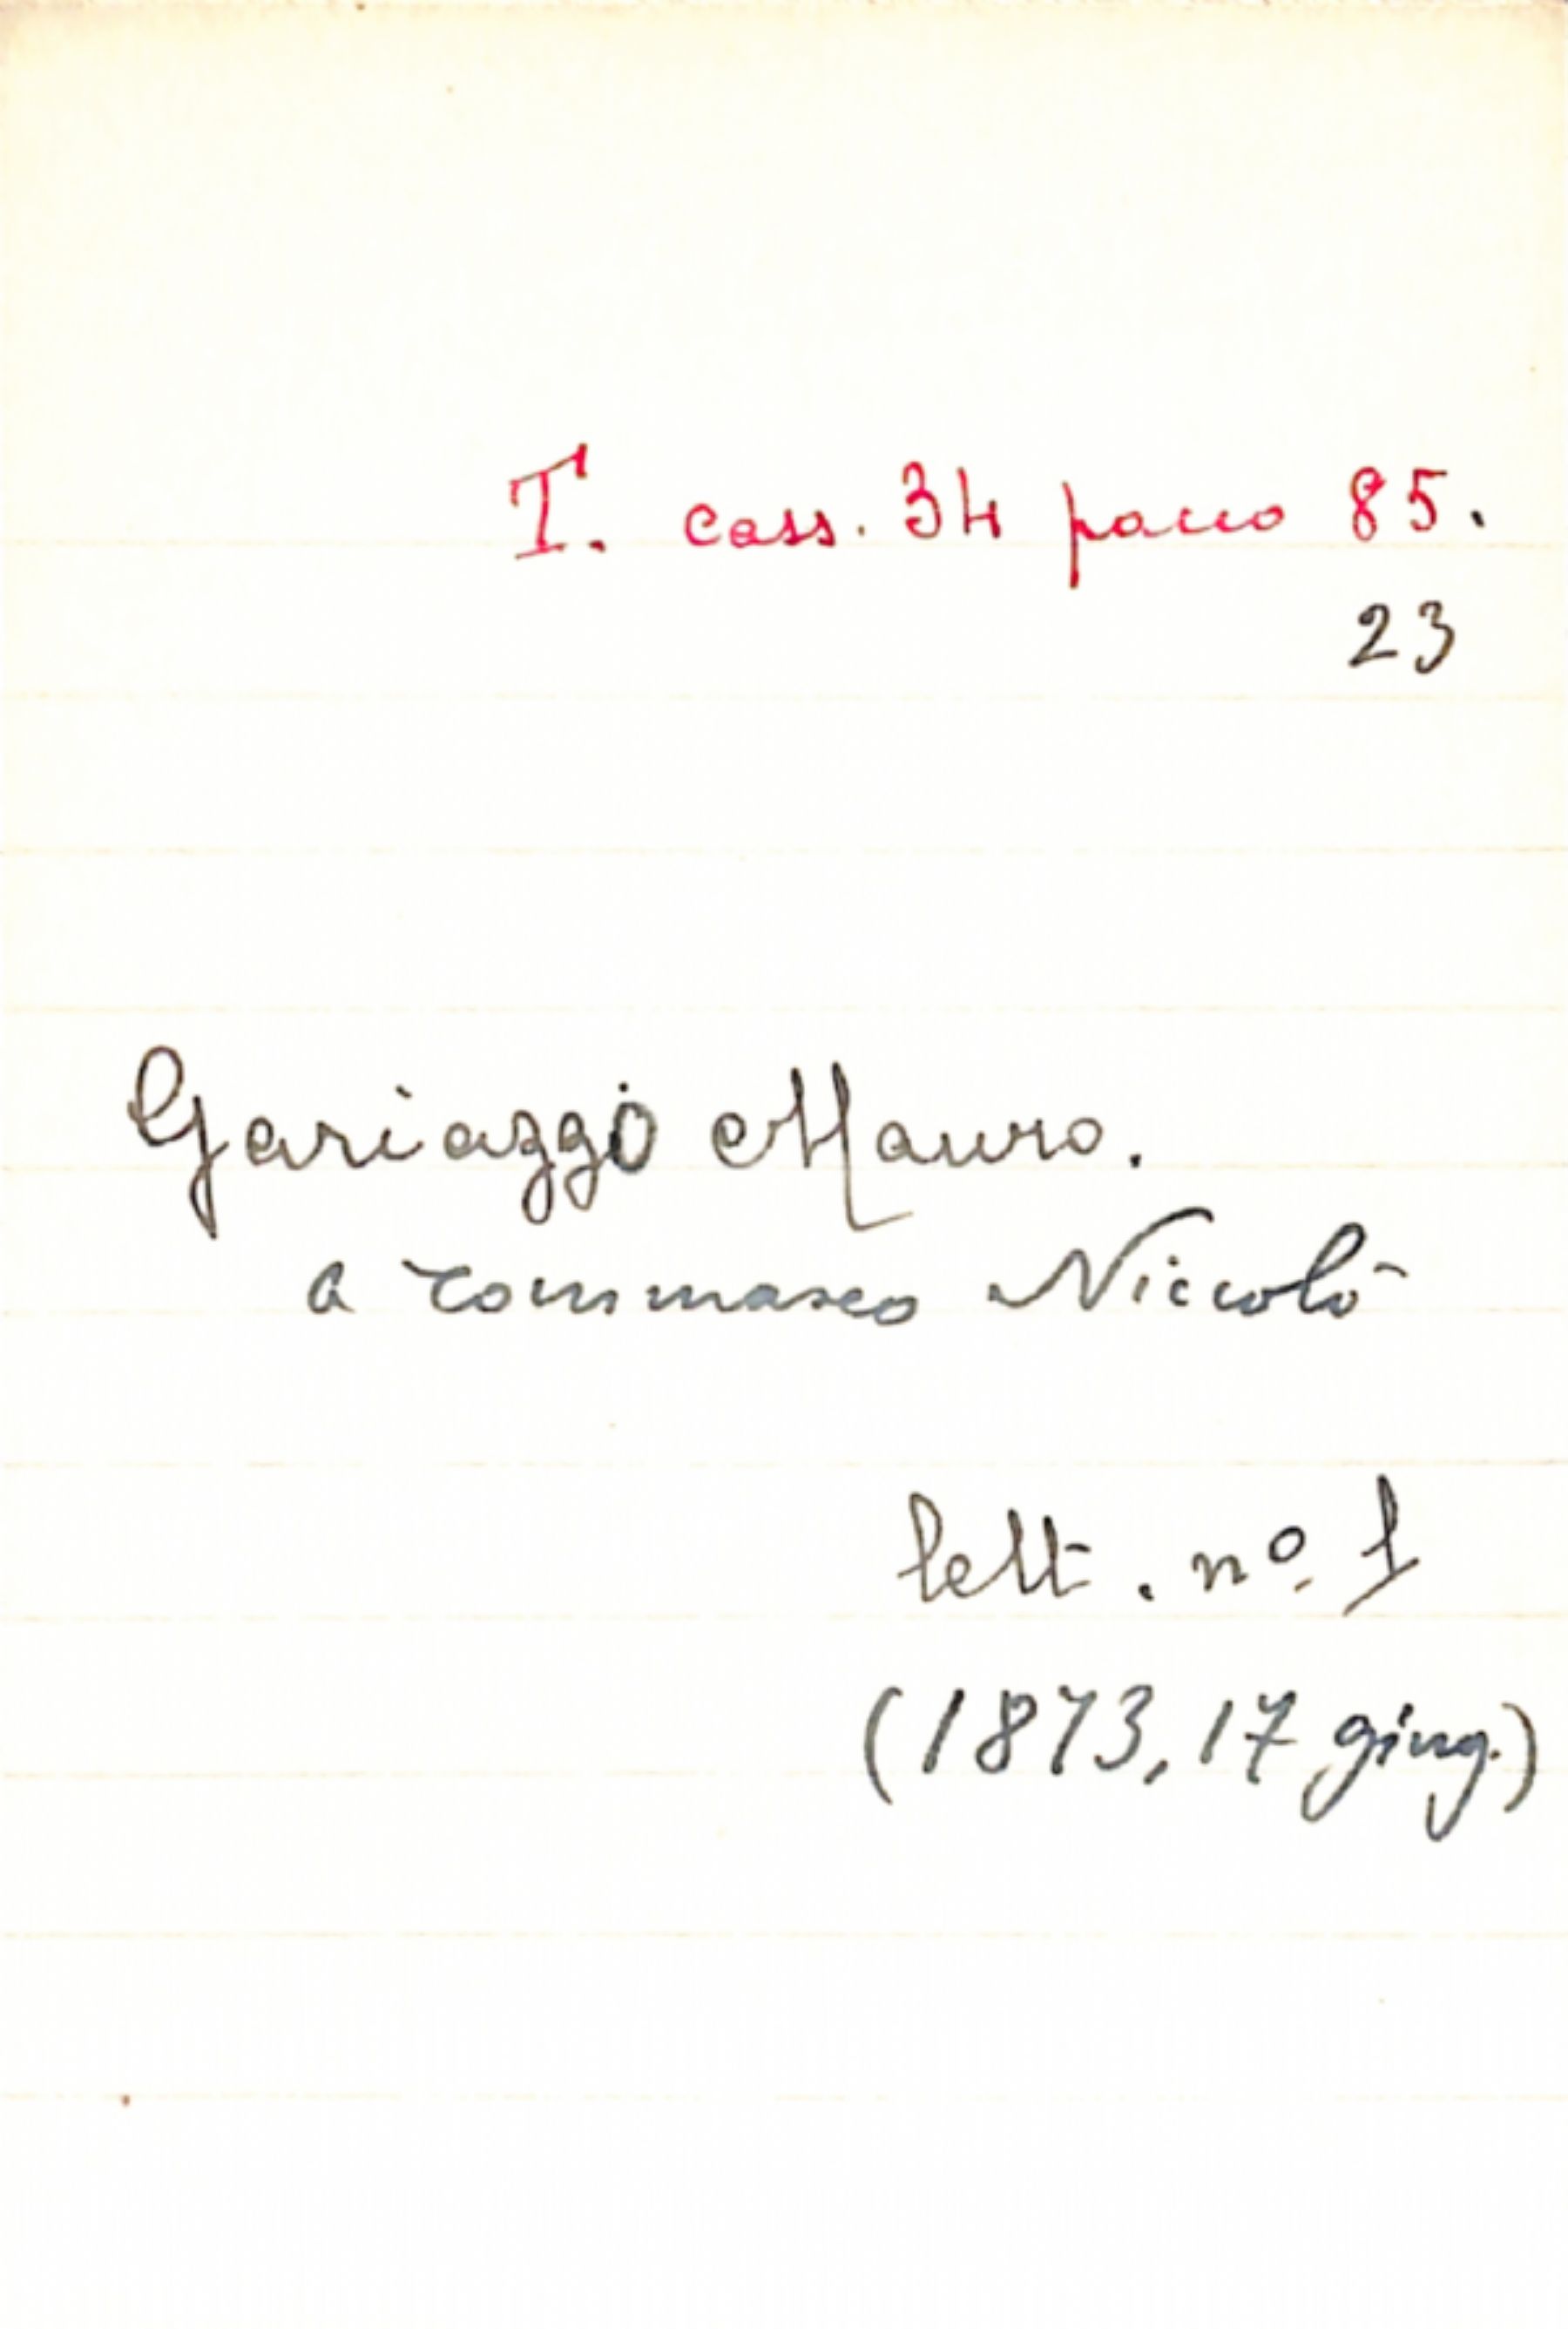 T. cass. 34 pacco 85.
23
Gariazzo Mauro.
a Tommaseo Niccolò
lett. nº 1
(1873, 17 giug.)